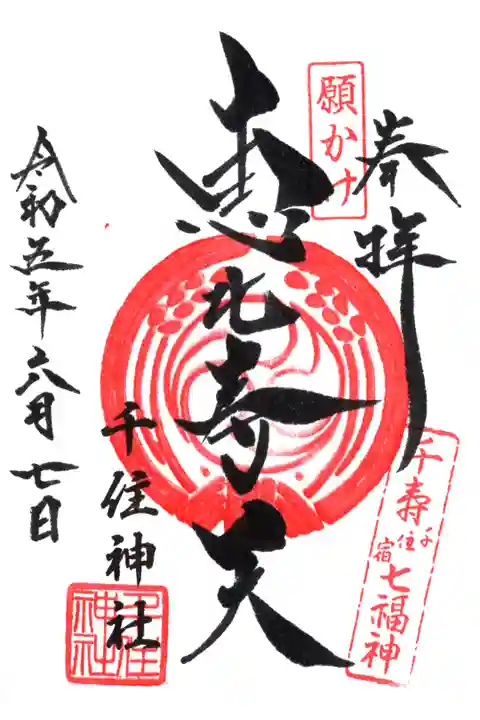 奉拝
願かけ
恵比寿天
千住神社
令和五年六月七日
千寿七福神
千住宿
千住神社